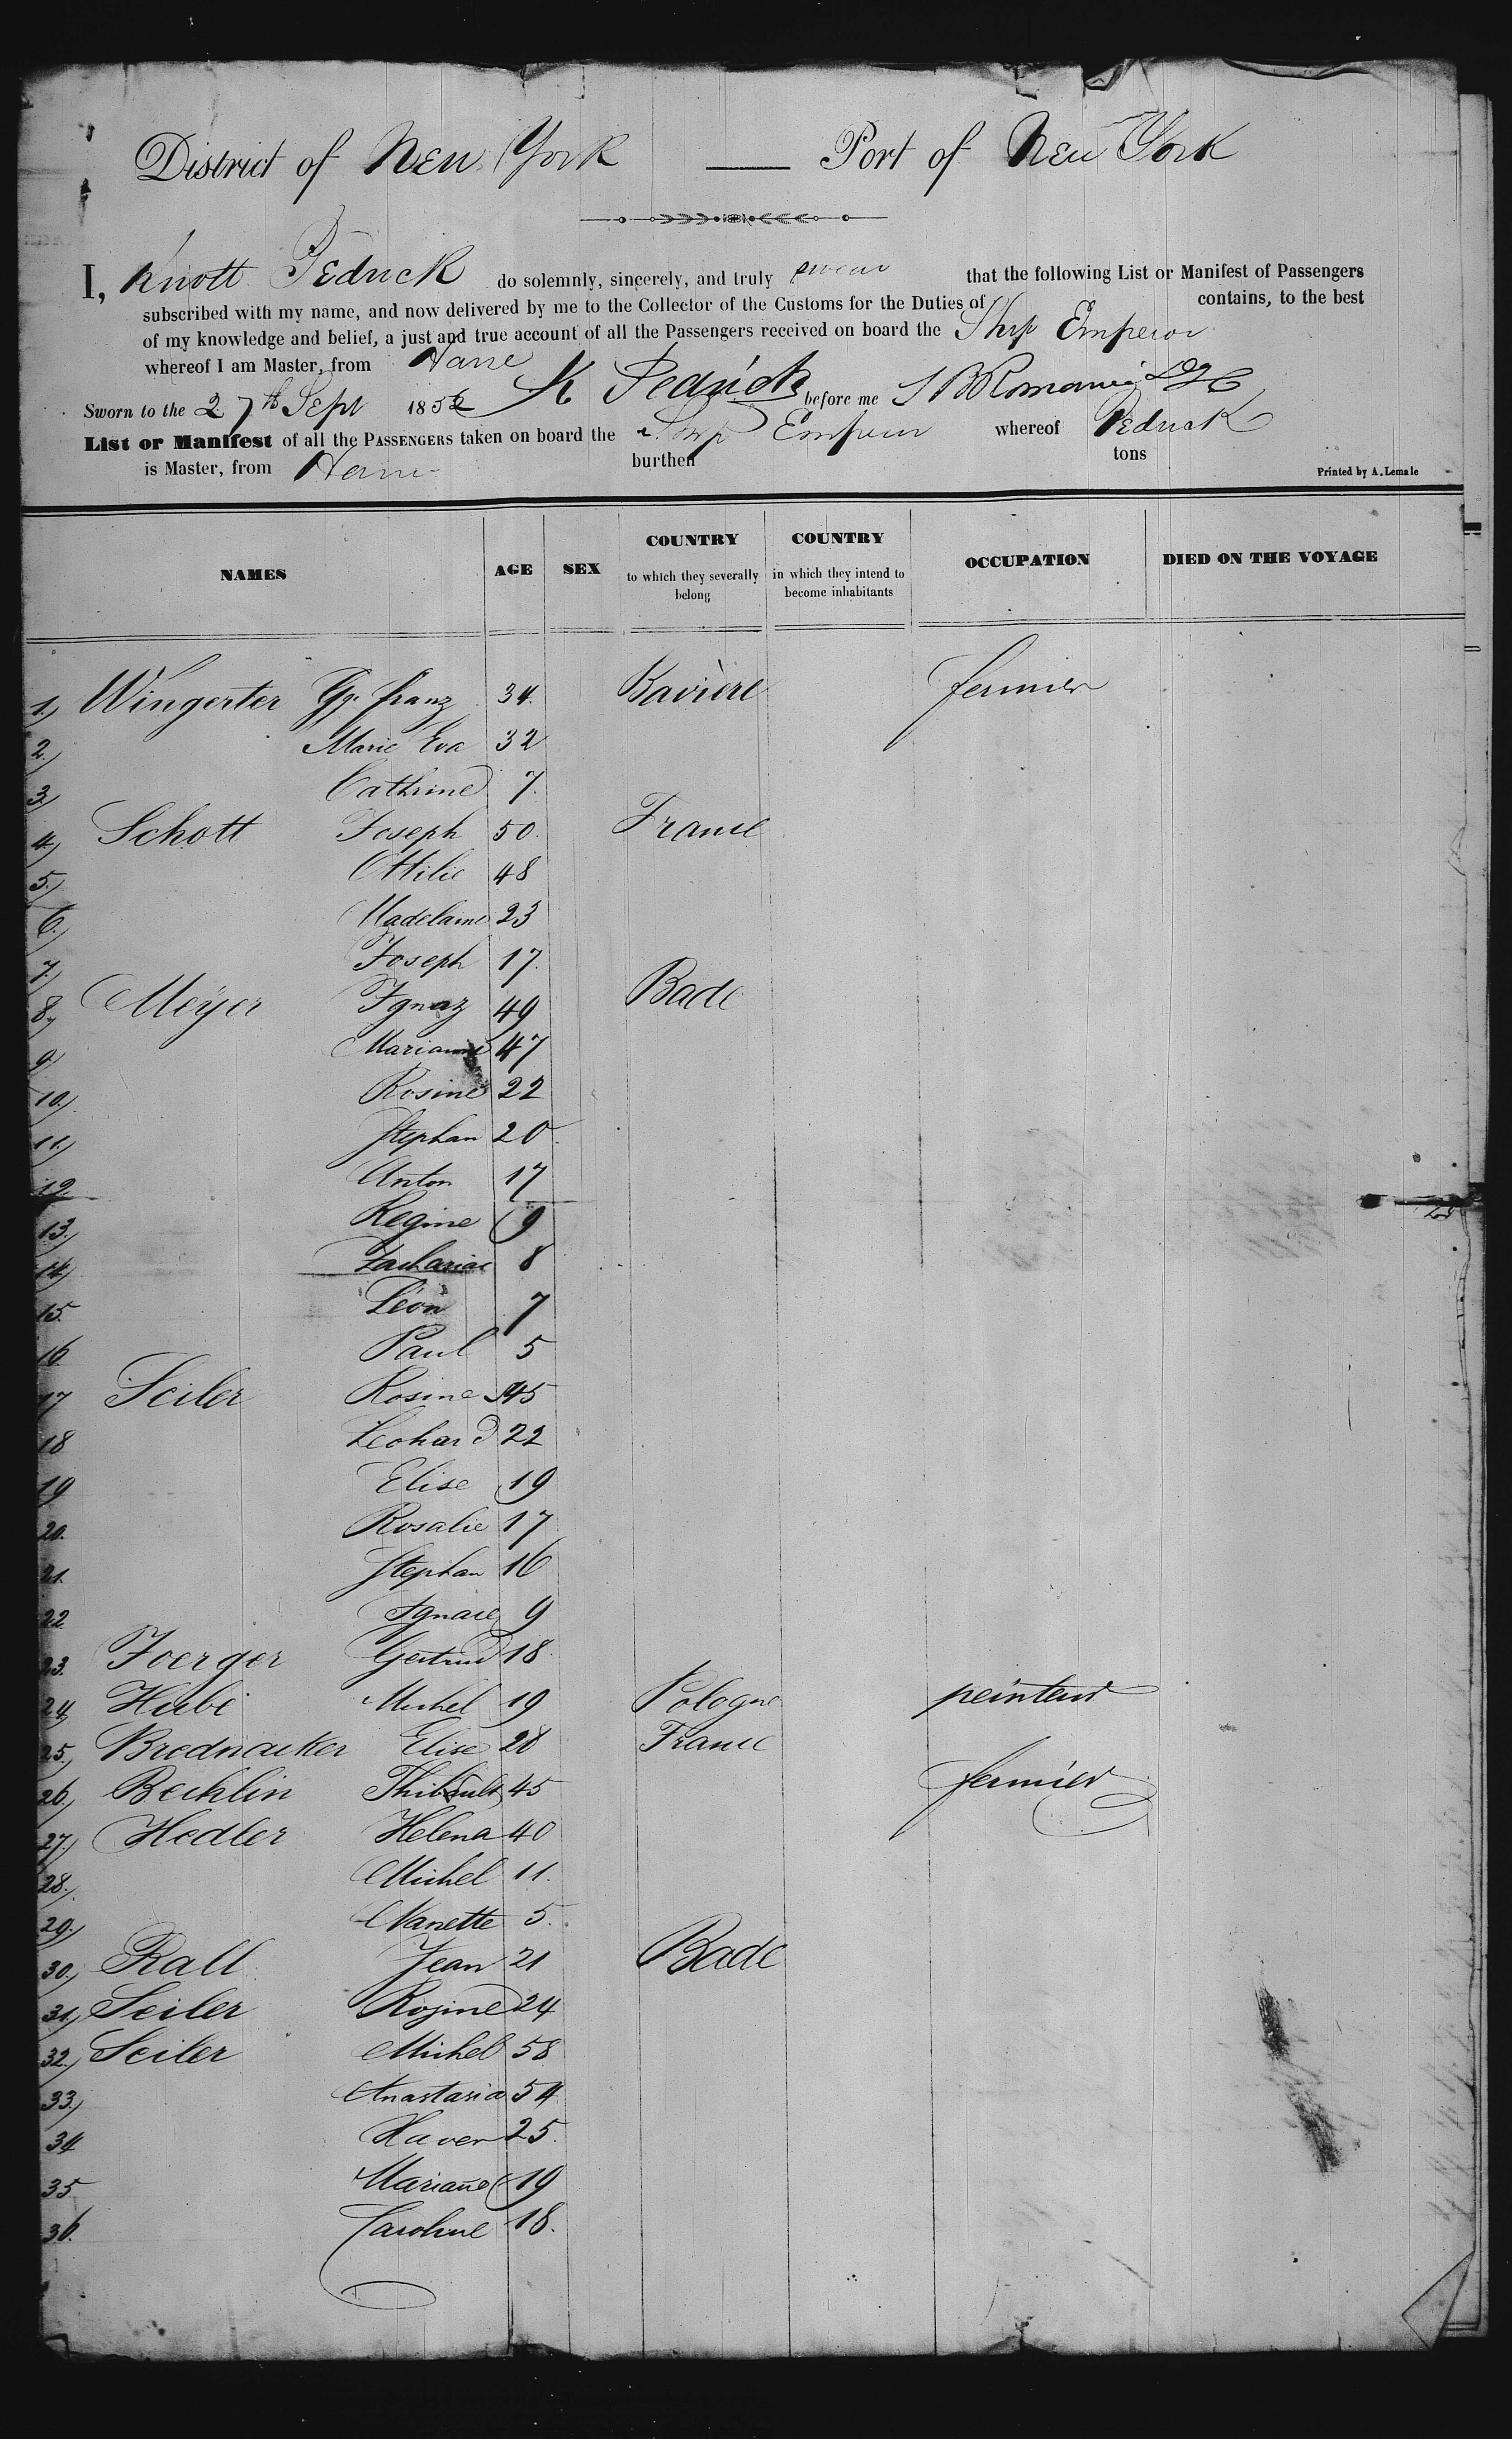 District of New York — Port of New York
I, Knott Pedrick do solemnly, sincerely, and truly swear that the following List or Manifest of Passengers
subscribed with my name, and now delivered by me to the Collector of the Customs for the Duties of contains, to the best
of my knowledge and belief, a just and true account of all the Passengers received on board the Ship Emperor
whereof I am Master, from Havre
Sworn to the 27th Sept 1852 K Pedrick before me
List or Manifest of all the PASSENGERS taken on board the Ship Emperor whereof Pedrick
is Master, from Havre burthen tons
Printed by A. Lemale
NAMES AGE SEX COUNTRY to which they severally belong COUNTRY in which they intend to become inhabitants OCCUPATION DIED ON THE VOYAGE
1.) Wingerter Gg. franz 34. Bavière fermier
2.) Marie Eva 32
3.) Cathrine 7.
4.) Schott Joseph 50. France
5.) Ottilie 48
6.) Madelaine 23
7.) Joseph 17.
8.) Meÿer Ignaz 49 Bade
9.) Marianne 47
10.) Rosine 22
11.) Stephan 20.
12 Anton 17
13.) Regine 9
14.) Zacharias 8
15. Léon 7
16 Paul 5
17 Seiler Rosine 45
18 Leohard 22
19 Elise 19
20. Rosalie 17
21. Stephan 16
22 Ignace 9
23. Joerger Gertrud 18.
24.) Hubi Michel 19 Pologne peinteur
25.) Brednacker Elise 28 France
26.) Bechlin Thibault 45 fermier
27.) Hedler Helena 40
28.) Michel 11.
29.) Nanette 5.
30.) Rall Jean 21 Bade
31.) Seiler Rosine 24
32.) Seiler Michel 58
33.) Anastasia 54
34 Xaver 25.
35 Mariane 19
36. Caroline 18.